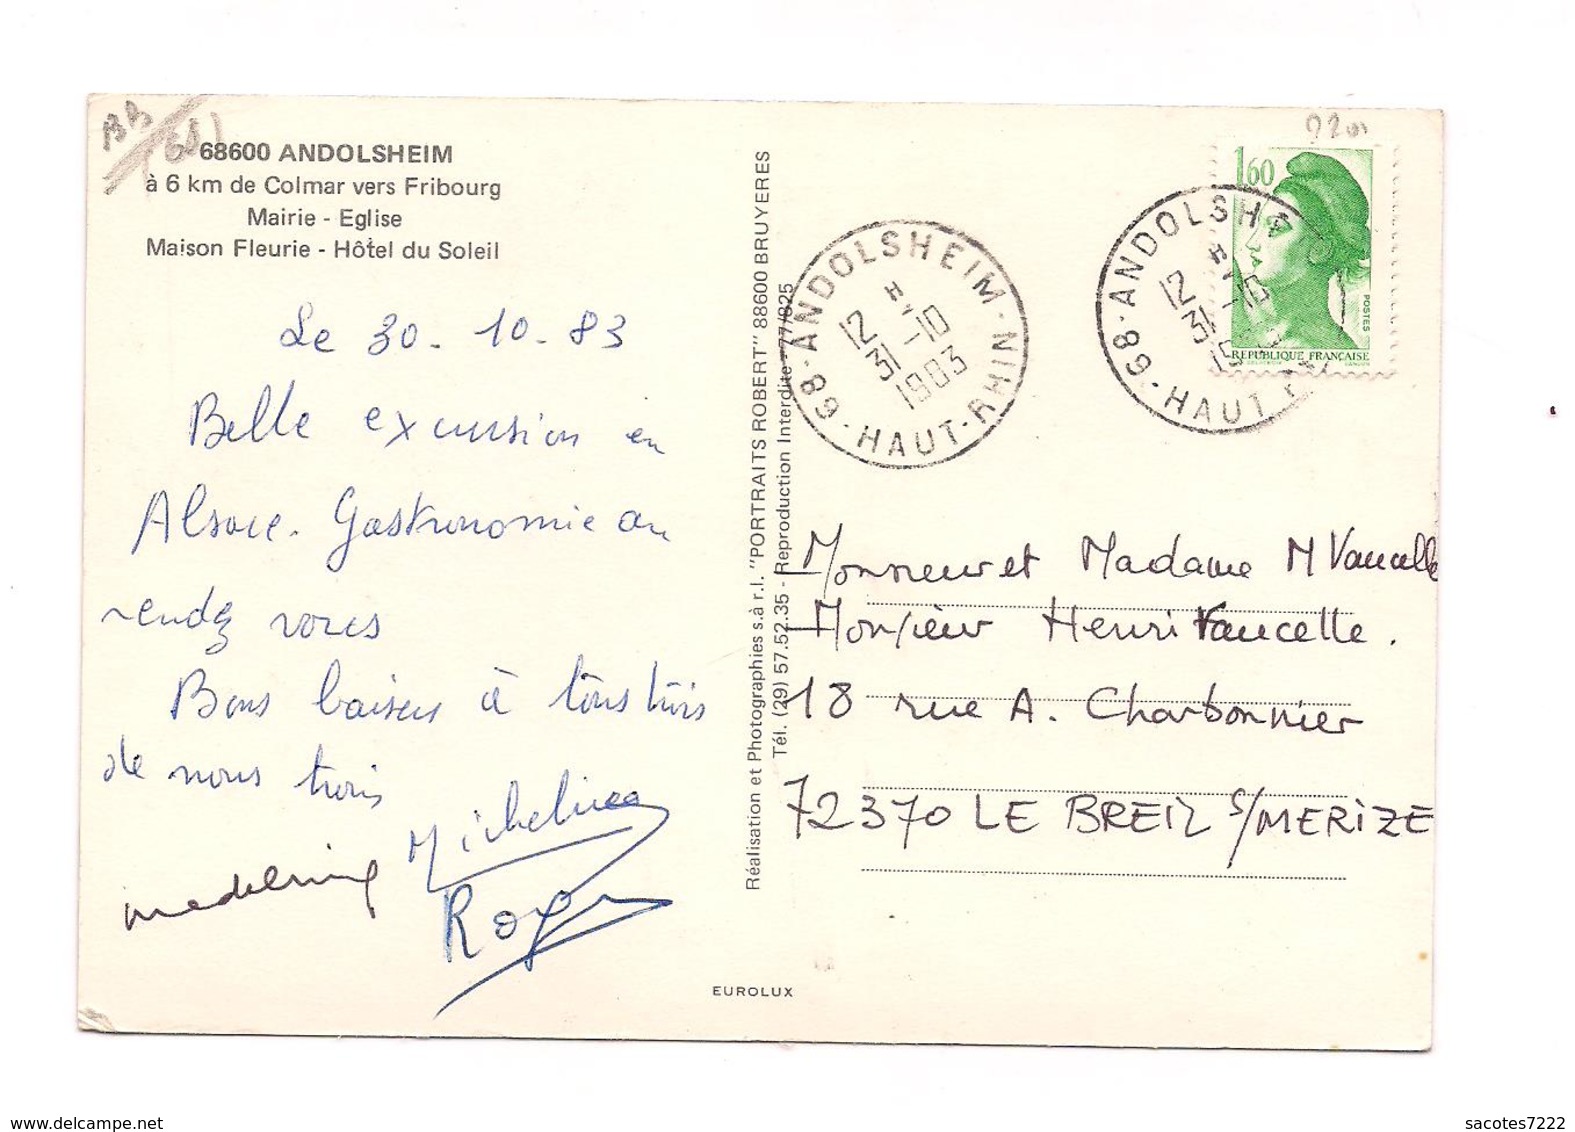 68600 ANDOLSHEIM
à 6 km de Colmar vers Fribourg
Mairie - Eglise
Maison Fleurie - Hôtel du Soleil
Le 30-10-83
Belle excursion en
Alsace. Gastronomie au
rendez vous
Bons baisers à tous trois
de nous trois
Micheline
Roger
Réalisation et Photographies s.à r.l. "PORTRAITS ROBERT" 88600 BRUYERES
Tél. (29) 57.52.35 - Reproduction Interdite 77/825
EUROLUX
68 - ANDOLSHEIM - HAUT-RHIN
12 H
31-10
1983
68 - ANDOLSH HAUT R
12 H
31-10
1.60
POSTES
REPUBLIQUE FRANÇAISE
Monsieur et Madame M Vaucelle
Monsieur Henri Vaucelle.
18 rue A. Charbonnier
72370 LE BREIL S/MERIZE
www.delcampe.net
sacotes7222